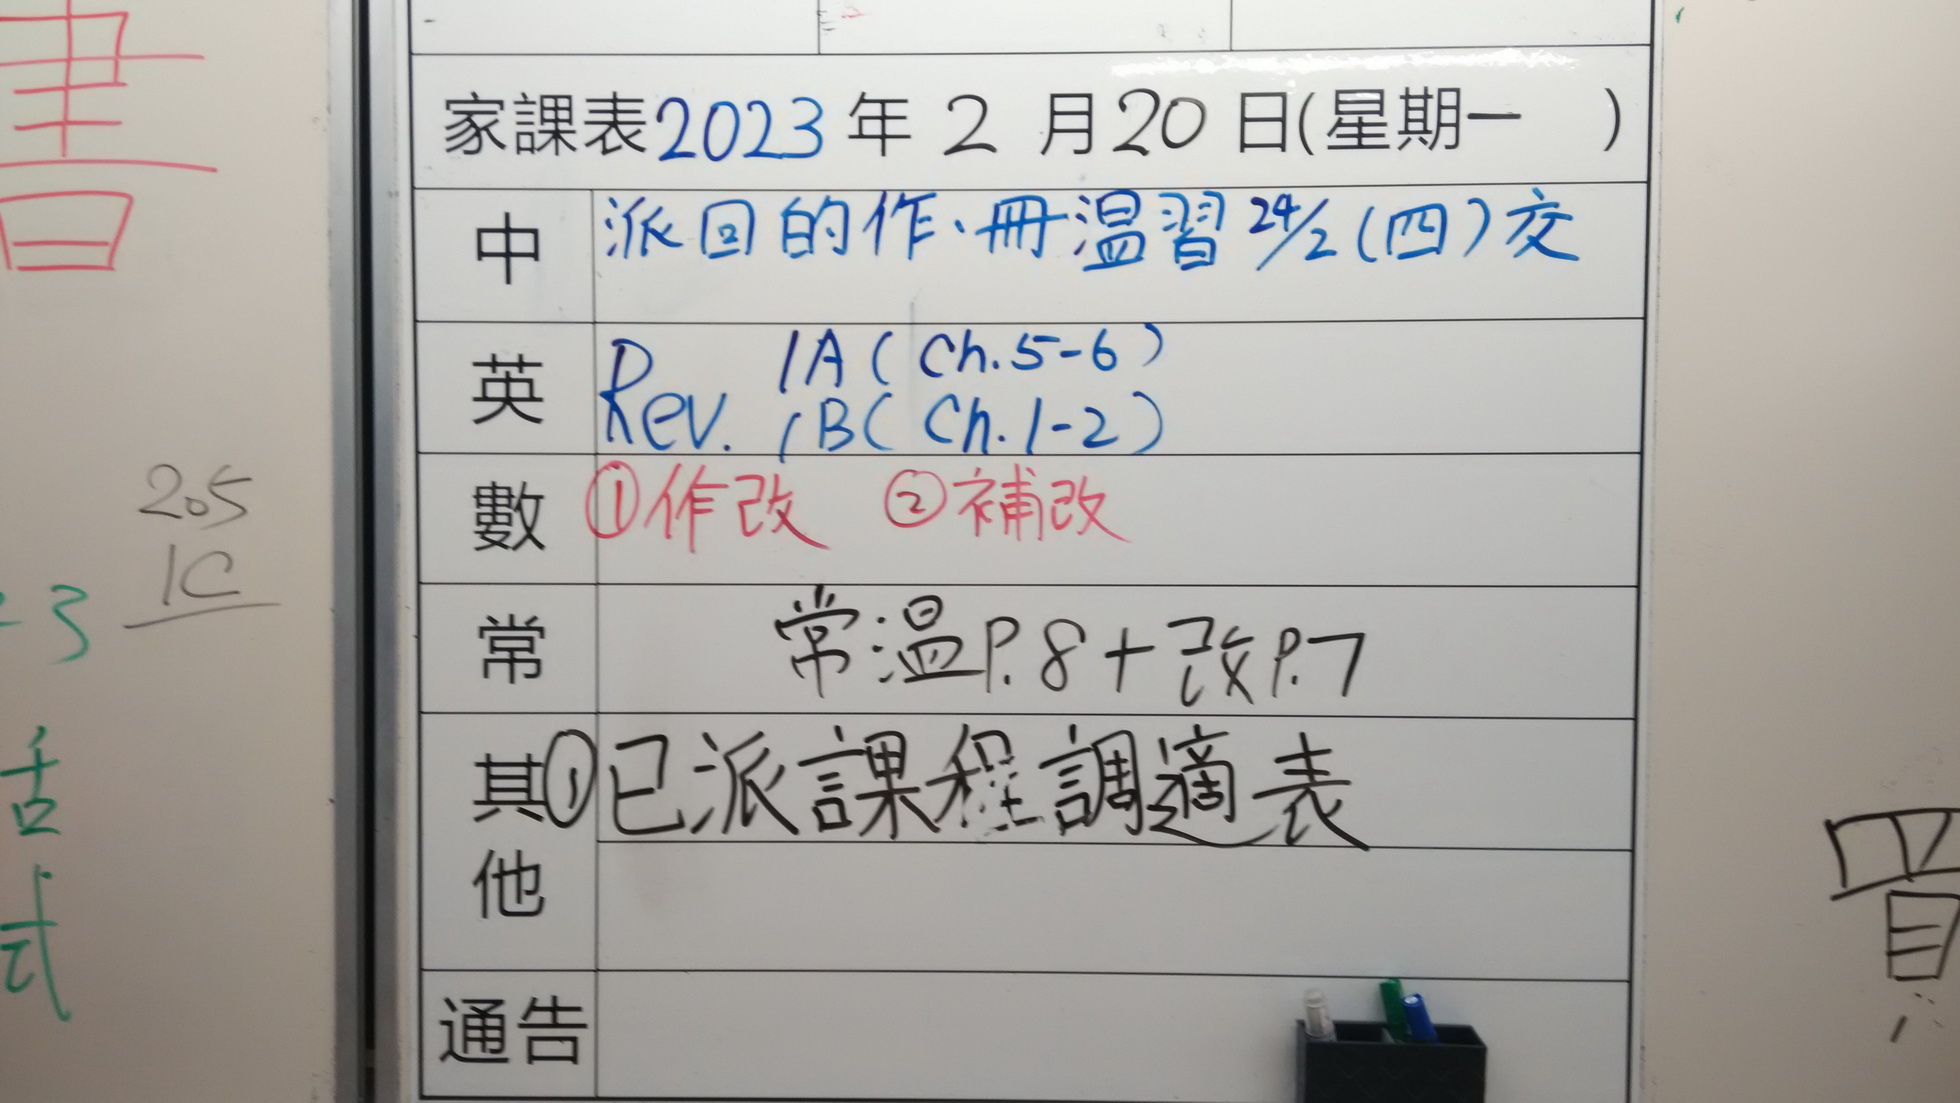 書
205
1C
-3
舌
式
家課表2023年2月20日(星期一 )
中 派回的作、冊溫習 24/2 (四) 交
英 Rev. 1A (Ch.5-6)
1B (Ch.1-2)
數 ①作改 ②補改
常 常溫P.8+改P.7
其他 ①已派課程調適表
通告